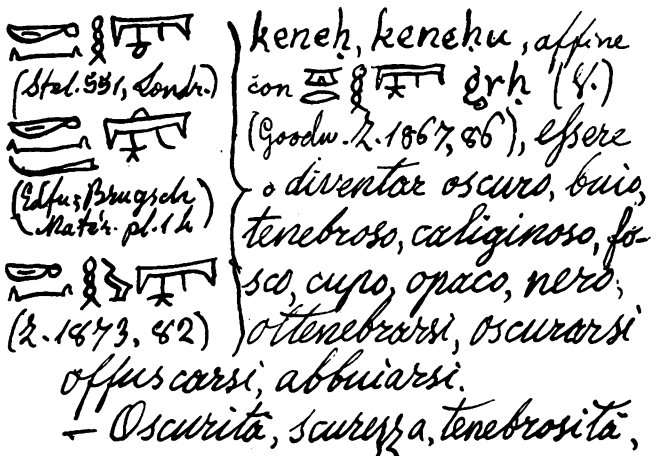 (Stel. 551, Londr.)
(Edfu; Brugsch
Matér. pl. 1 h)
(Z. 1873, 82)
keneḥ, keneḥu, affine
con grḥ (V.)
(Goodw. Z. 1867, 86), essere
o diventar oscuro, buio,
tenebroso, caliginoso, fo-
sco, cupo, opaco, nero;
ottenebrarsi, oscurarsi
offuscarsi, abbuiarsi.
— Oscurità, scurezza, tenebrosità,